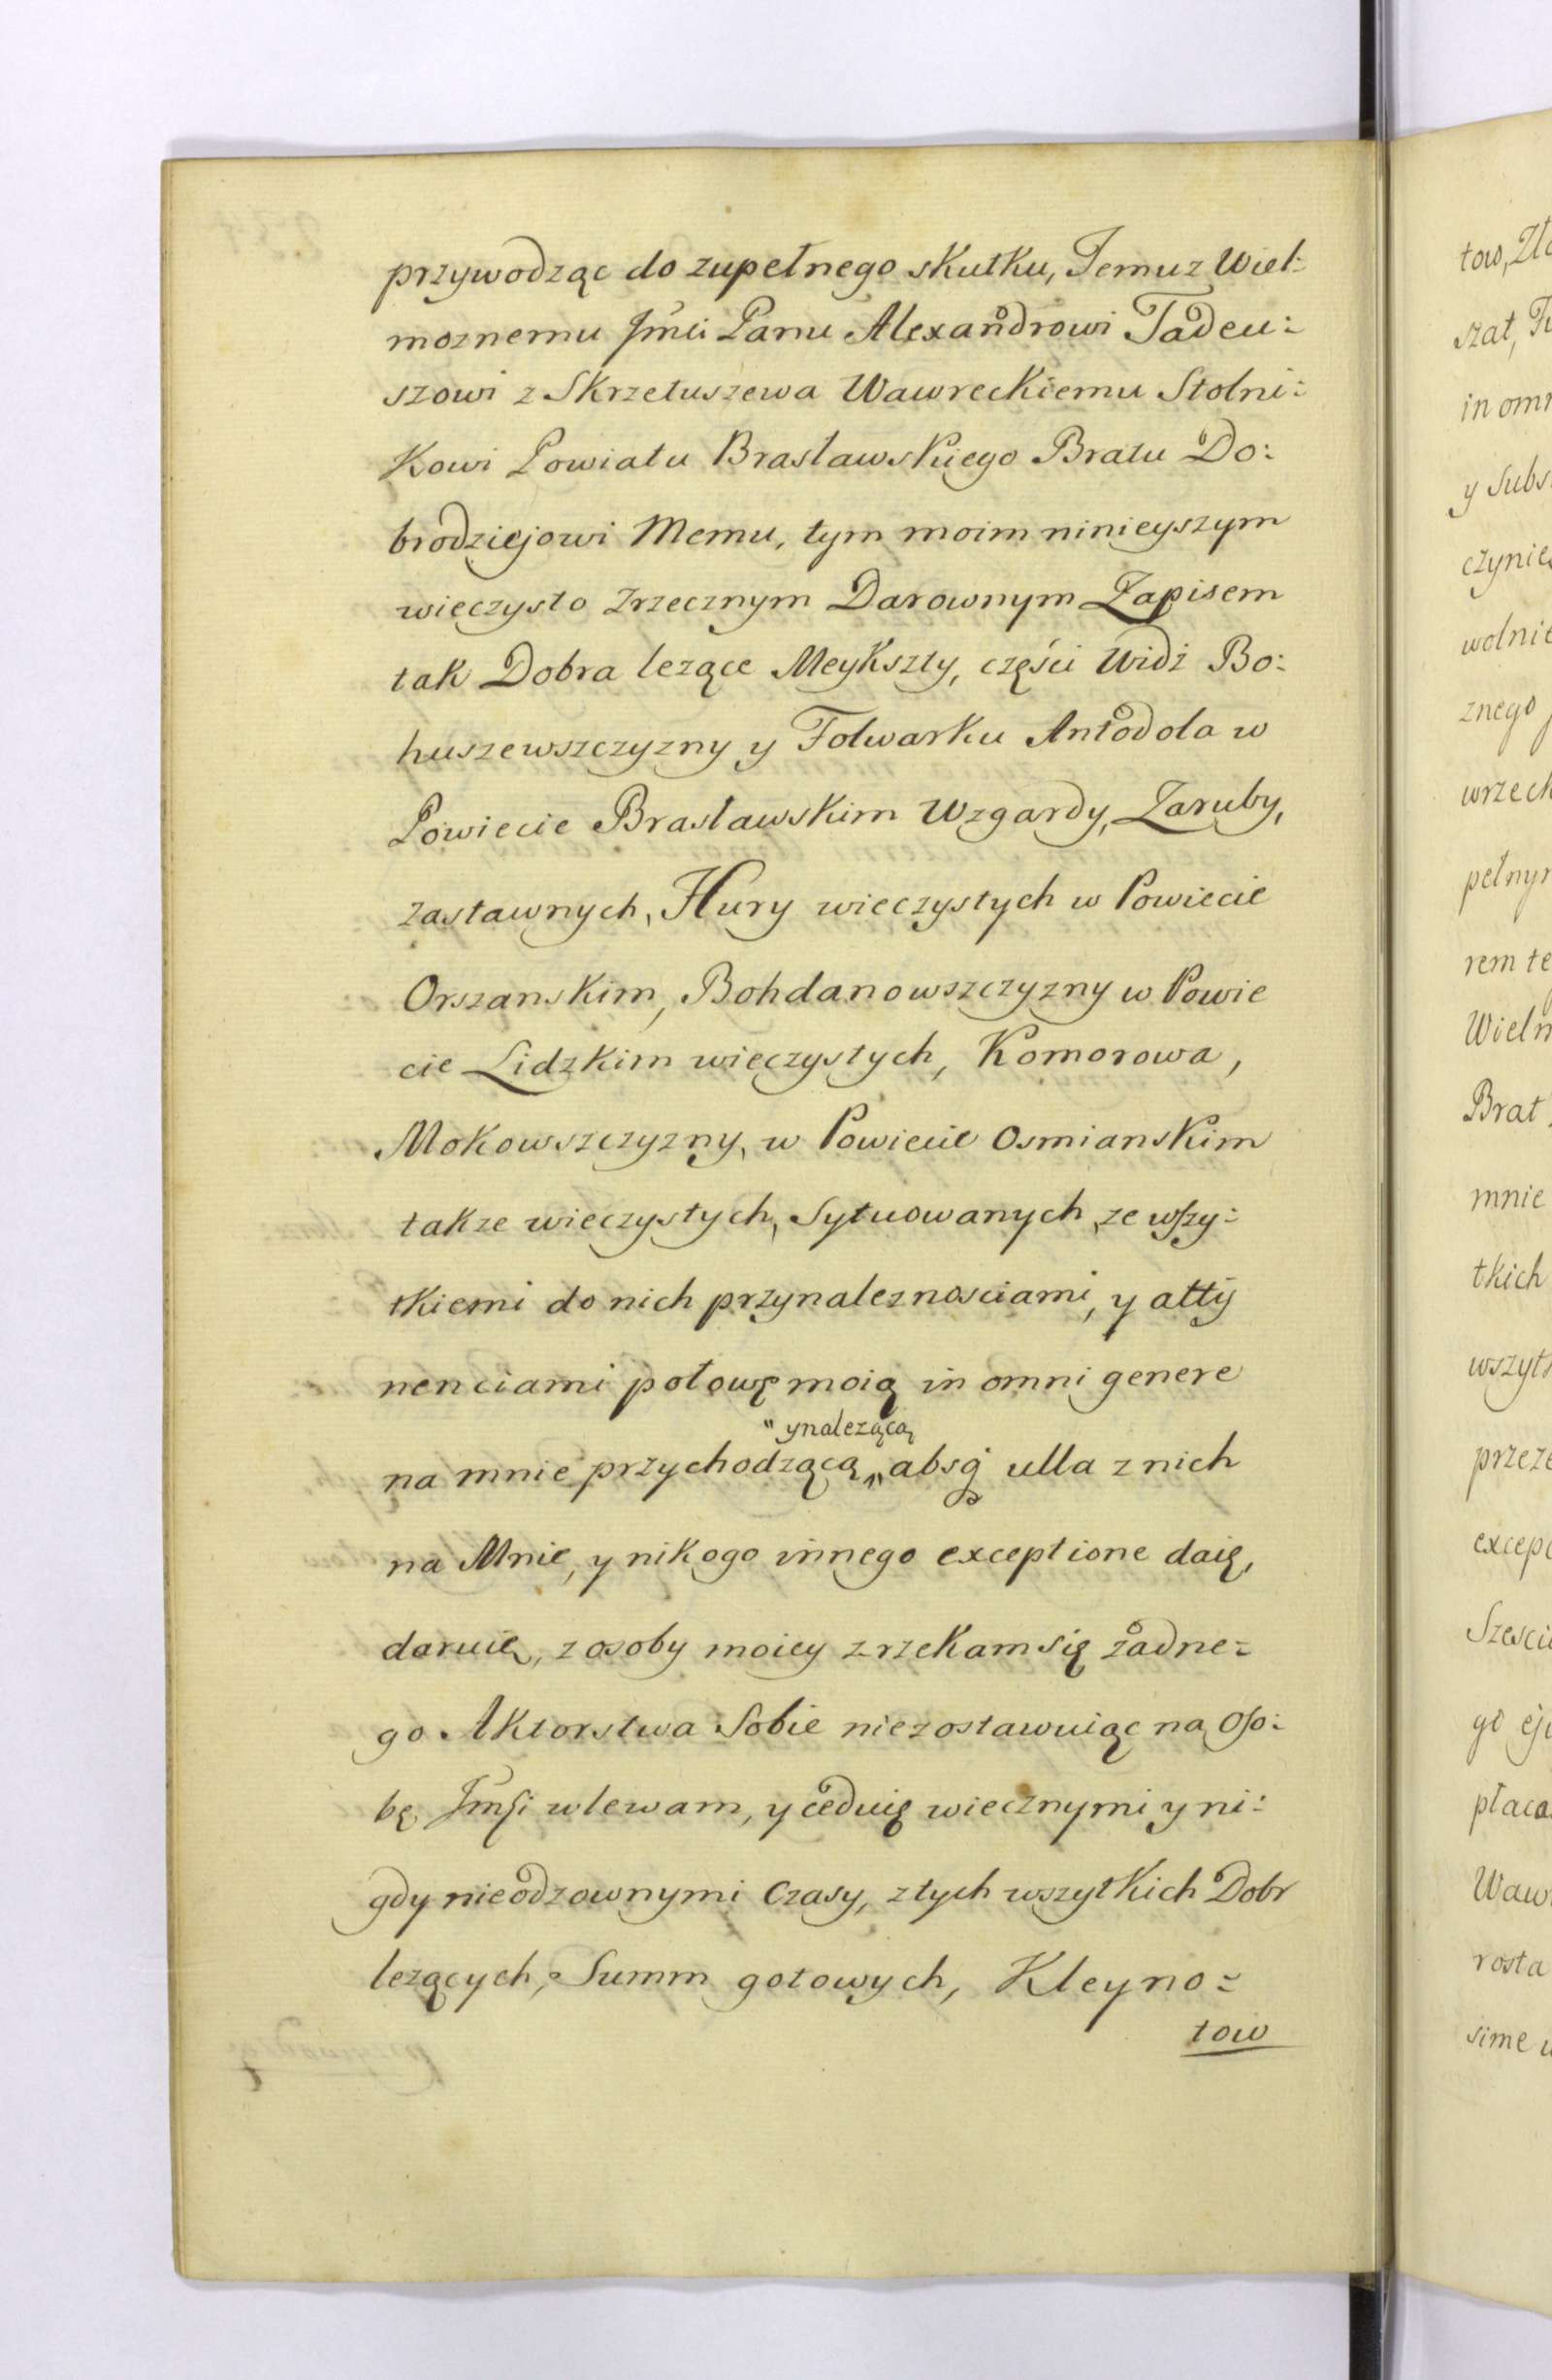 przywodząc do zupełnego skutku, Temuz Wiel:
moznemu Jmci Panu Alexandrowi Tadeu:
szowi z Skrzetuszewa Wawreckiemu Stolni:
kowi Powiatu Brasławskiego Bratu Do:
brodziejowi Memu, tym moim ninieyszym
wieczysto zrzecznym Darownym Zapisem
tak Dobra lezące Meykszty, części Widź Bo:
huszewszczyzny y Folwarku Antodola w
Powiecie Brasławskim Wzgardy, Zaruby,
zastawnych, Hury wieczystych w Powiecie
Orszanskim, Bohdanowszczyzny w Powie
cie Lidzkim wieczystych, Komorowa,
Mokowszczyzny, w Powiecie Osmianskim
takze wieczystych, Sytuowanych, ze wszy:
tkiemi do nich przynaleznosciami, y atty
nenciami połowę moią in omni genere
" ynalezącą
na mnie przychodzącą " absq ulla z nich
na Mnie, y nikogo innego exceptione daię,
daruię, z osoby moiey zrzekam się żadne:
go Aktorstwa Sobie niezostawuiąc na Oso:
bę Jmsi wlewam, y ceduię wiecznymi y ni:
gdy nieodzownymi Czasy, z tych wszytkich Dobr
lezących, Summ gotowych, Kleyno:
tow
tow,
szat,
in
y
wolnie
znego
Brat
mnie
tkich
rosta
sime